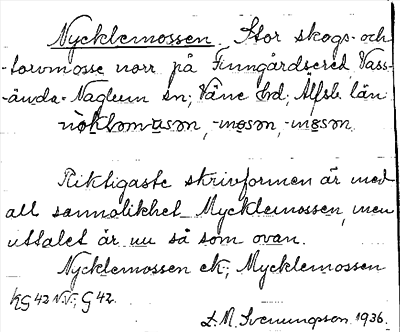 Nycklemossen. Stor skogs- och
torvmosse norr på Finngårdsered Väss-
ända-Naglum sn; Väne hd; Älfsb. län
nökləmosən, -mosən, -mosən.
Riktigaste skrivformen är med
all sannolikhet Mycklemossen, men
uttalet är nu så som ovan.
Nycklemossen ek; Mycklemossen
KG 42 N.V.; G 42.
L. M. Svenungson 1936.